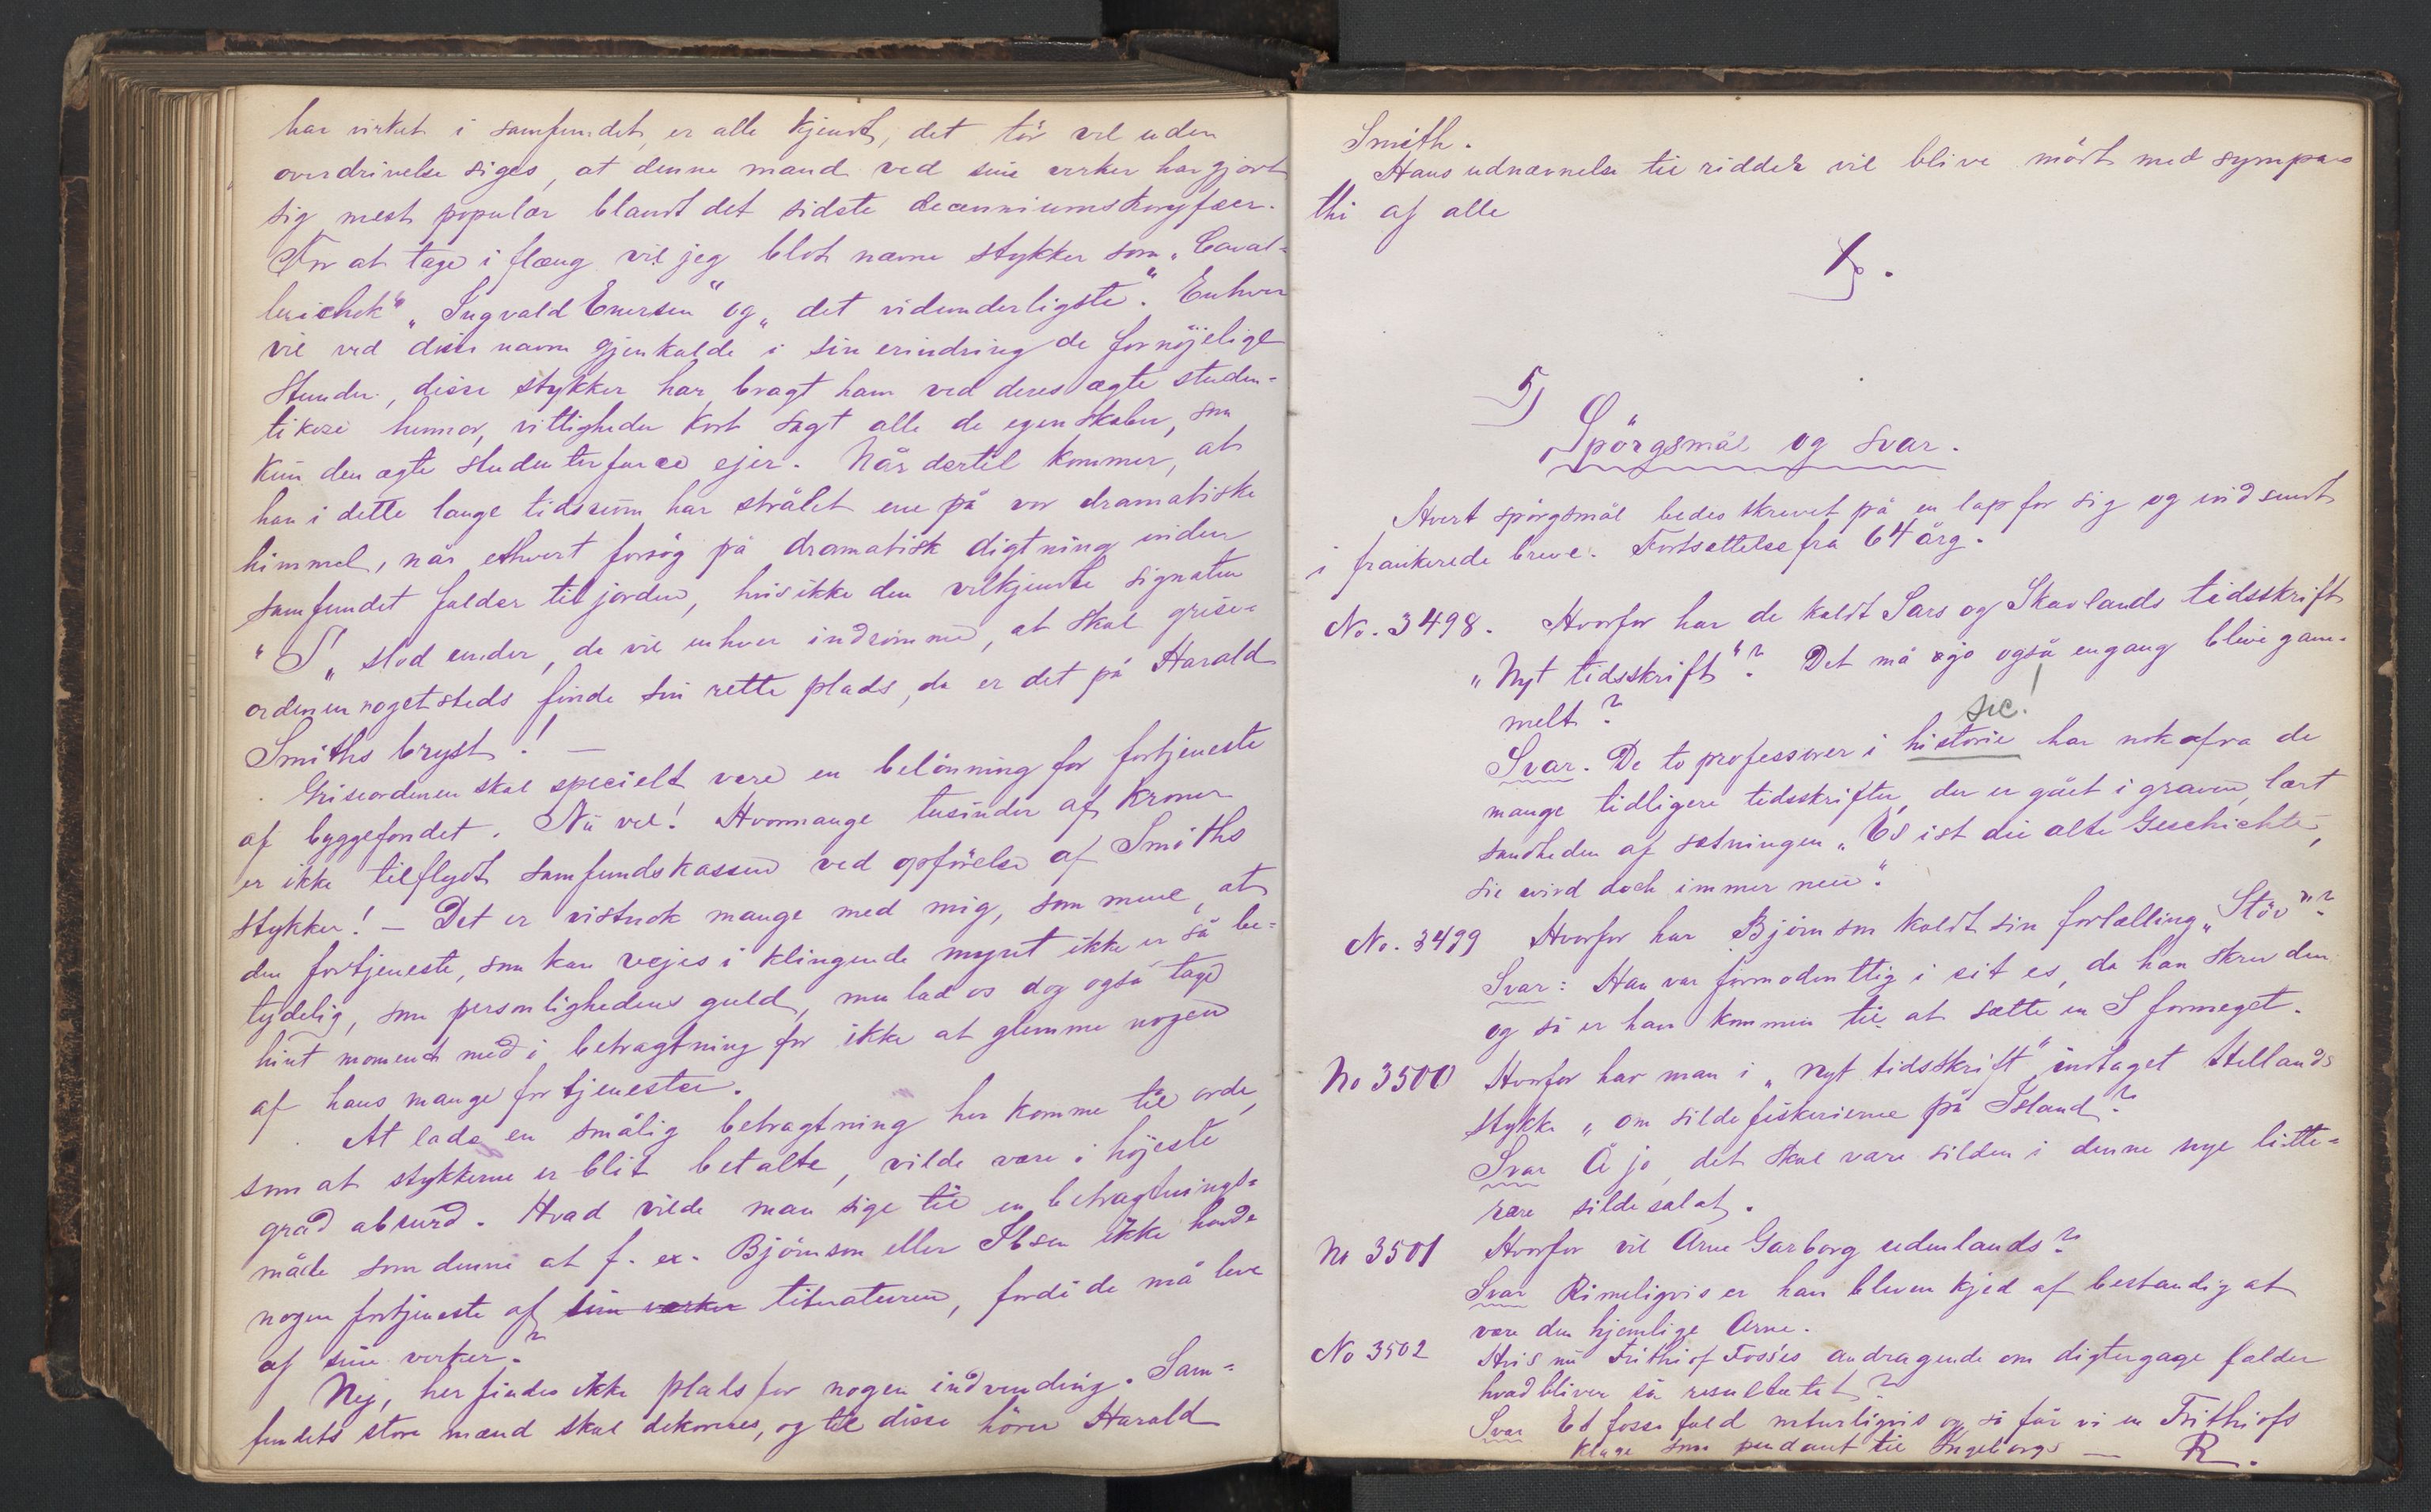 har virket i samfundet, er alle kjendt, det tör vel uden
overdrivelse siges, at denne mand ved sine verker har gjort
sig mest populær blandt det sidste decenniums koryfæer.
For at tage i flæng vil jeg blot nævne stykker som „Caval-
lerichok“ „Ingvald Enersen“ og „det vidunderligste“. Enhver
vil ved disse navne gjenkalde i sin erindring de fornöjelige
stunder, disse stykker har bragt ham ved deres ægte studen-
tikose humor, vittigheder kort sagt alle de egenskaber, som
kun den ægte studenterfarce ejer. Når dertil kommer, at
han i dette lange tidsrum har strålet ene på vor dramatiske
himmel, når ethvert forsög på dramatisk digtning inden
samfundet falder til jorden, hvis ikke den velkjendte signatur
"S„ stod under, da vil enhver indrömme, at skal grise-
ordenen nogetsteds finde sin rette plads, da er det på Harald
Smiths bryst! —
Griseordenen skal specielt være en belönning for fortjeneste
af byggefondet. Nu vel! Hvormange tusinder af kroner
er ikke tilflydt samfundskassen ved opförelse af Smiths
stykker! — Det er vistnok mange med mig, som mene, at
den fortjeneste, som kan vejes i klingende mynt ikke er så be-
tydelig, som personlighedens guld, men lad os dog også tage
hint moment med i betragtning for ikke at glemme nogen
af hans mange fortjenester.
At lade en smålig betragtning her komme til orde,
som at stykkerne er blit betalte, vilde være i höjeste
grad absurd. Hvad vilde man sige til en betragtnings-
måde som denne at f. ex. Björnson eller Ibsen ikke havde
nogen fortjeneste af sine værker literaturen, fordi de må leve
af sine verker?
Nej, her findes ikke plads for nogen indvending. Sam-
fundets store mænd skal dekoreres, og til disse hörer Harald
Smith.
Hans udnævnelse til ridder vil blive mödt med sympa-
thi af alle
5)
Spörgsmål og svar.
Hvert spörgsmål bedes skrevet på en lap for sig og indsendt
i frankerede breve. Fortsættelse fra 64 årg.
No. 3498. Hvorfor har de kaldt Sars og Skavlands tidsskrift
„Nyt tidsskrift“? Det må jo også engang blive gam-
melt?
sic!
Svar. De to professorer i historie har nok afra de
mange tidligere tidsskrifter, der er gået i graven, lært
sandheden af sætningen „Es ist die alte Geschichte,
sie wird doch immer neu“.
No. 3499 Hvorfor har Björnson kaldt sin fortælling „Stöv“?
Svar: Han var formodentlig i sit es, da han skrev den
og så er han kommen til at sætte en S formeget.
No 3500 Hvorfor har man i „nyt tidsskrift“ indtaget Hellands
stykke „om silde fiskerierne på Island?
Svar Å jo, det skal være silden i denne nye litte-
rære sildesalat.
No 3501 Hvorfor vil Arne Garborg udenlands?
Svar Rimeligvis er han bleven kjed af bestandig at
være den hjemlige Arne.
No 3502 Hvis nu Frithiof Fosses andragende om digtergage falder
hvad bliver så resultatet?
Svar Et fosse fald naturligvis og så får vi en Frithiofs
klage som pendant til Ingeborgs — R.